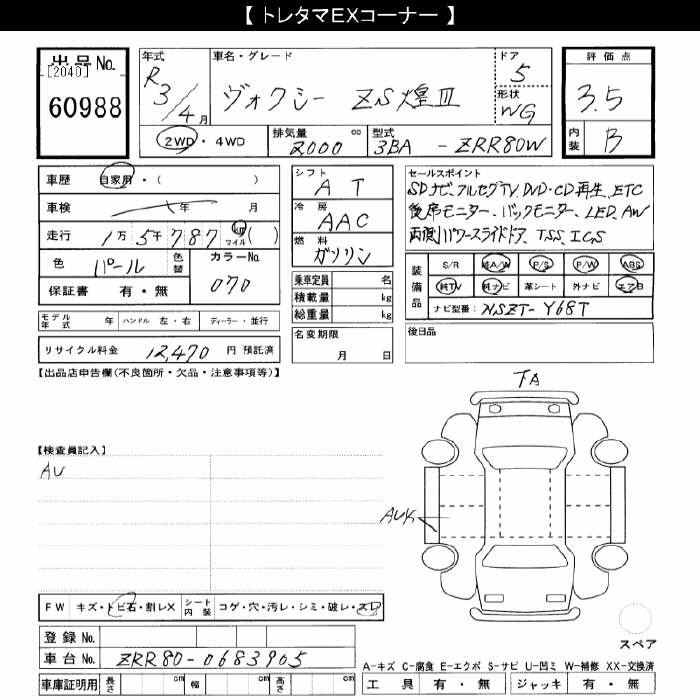 【 トレタマEXコーナー 】
出品No.
[2040]
60988
年式
R3/4月
車名・グレード
ヴォクシー ZS煌Ⅲ
ドア
5
形状
WG
評価点
3.5
内装
B
2WD・4WD
排気量
2000
cc
型式
3BA - ZRR80W
車歴 自家用・( )
車検 年 月
走行 1万5千787 km マイル ( )
色 パール
色替
カラーNo.
070
保証書 有・無
モデル年式 年 ハンドル 左・右 ディーラー・並行
リサイクル料金 12,470 円 預託済
シフト
AT
冷房
AAC
燃料
ガソリン
乗車定員 名
積載量 kg
総重量 kg
名変期限
月 日
セールスポイント
SDナビ、フルセグTV、DVD・CD再生、ETC
後席モニター、バックモニター、LED、AW
両側パワースライドドア、TSS、ICS
装備品
S/R 純A/W P/S P/W ABS
純TV 純ナビ 革シート 外ナビ エアB
ナビ型番: NSZT-Y68T
後日品
【出品店申告欄(不良箇所・欠品・注意事項等)】
【検査員記入】
AU
FA
AUK
FW キズ・トビ石・割レX
シート内装 コゲ・穴・汚レ・シミ・破レ・スレ
登録No.
車台No. ZRR80-0683905
車庫証明用 長さ cm 幅 cm 高さ cm
スペア
A-キズ C-腐食 E-エクボ S-サビ U-凹ミ W-補修 XX-交換済
工具 有・無 ジャッキ 有・無